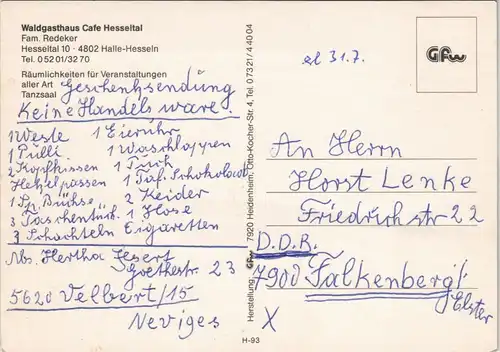 Waldgasthaus Cafe Hesseltal
Fam. Redeker
Hesseltal 10 · 4802 Halle-Hesseln
Tel. 0 52 01/32 70
Räumlichkeiten für Veranstaltungen
aller Art
Tanzsaal
Geschenksendung
Keine Handelsware.
1 Weste 1 Eieruhr
1 Pulli 1 Waschlappen
2 Kopfkissen 1 Tuch
1 Taf. Schokolade
1 Sp. Bühse 2 Kleider
3 Taschentüch. 1 Hose
3 Schachteln Zigaretten
Abs. Hertha
Goethestr. 23
5620 Velbert/15
Neviges
Herstellung: Gfw 7920 Heidenheim, Otto-Kocher-Str. 4, Tel. 0 73 21/4 40 04
H-93
31.7.
Gfw
An Herrn
Horst Lenke
Friedrichstr 22
D.D.R.
7900 Falkenberg/
Elster
X